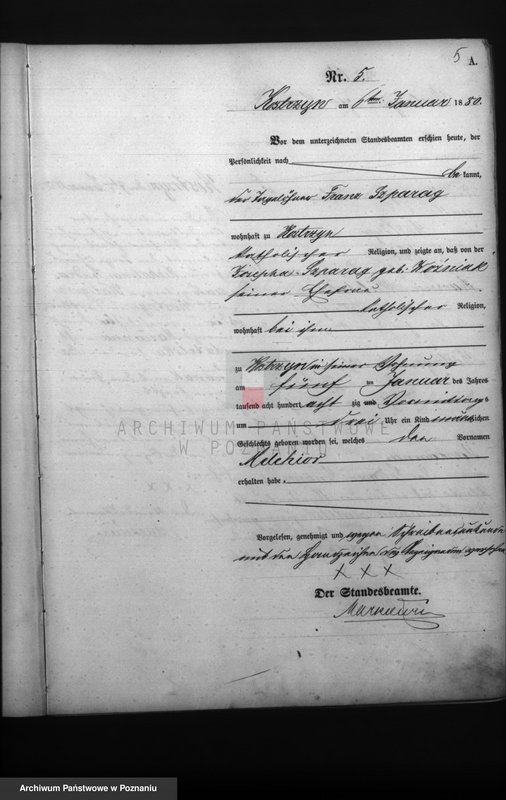 5
A.
Nr. 5.
Kostrzyn am 6ten Januar 1880.
Vor dem unterzeichneten Standesbeamten erschien heute, der
Persönlichkeit nach
be kannt,
der Tagelöhner Franz Szparag
wohnhaft zu Kostrzyn
katholischer Religion, und zeigte an, daß von der
Josepha Szparag geb. Woźniak
seiner Ehefrau
katholischer Religion,
wohnhaft bei ihm
zu Kostrzyn in seiner Wohnung
am fünf ten Januar des Jahres
tausend acht hundert acht zig und Vormittags
um drei Uhr ein Kind männlichen
Geschlechts geboren worden sei, welches den Vornamen
Melchior
erhalten habe.
Vorgelesen, genehmigt und wegen Schreibensunkunde
mit den Handzeichen des Anzeigenden versehen
x x x
Der Standesbeamte.
ARCHIWUM PAŃSTWOWE
W POZNANIU
Archiwum Państwowe w Poznaniu